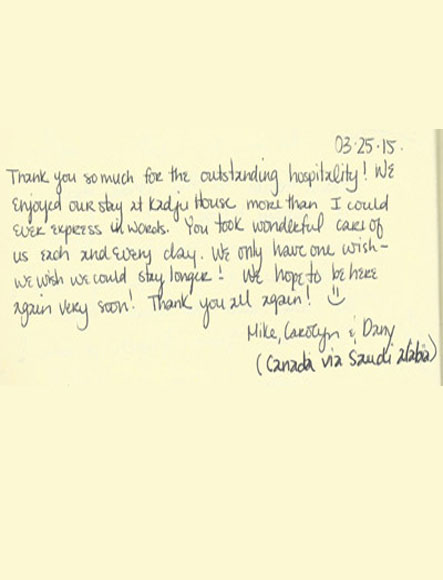 03·25·15.
Thank you so much for the outstanding hospitality! We
enjoyed our stay at Kadju House more than I could
ever express in words. You took wonderful care of
us each and every day. We only have one wish-
we wish we could stay longer! We hope to be here
again very soon! Thank you all again! ☺
Mike, Carolyn & Dany
(Canada via Saudi Arabia)